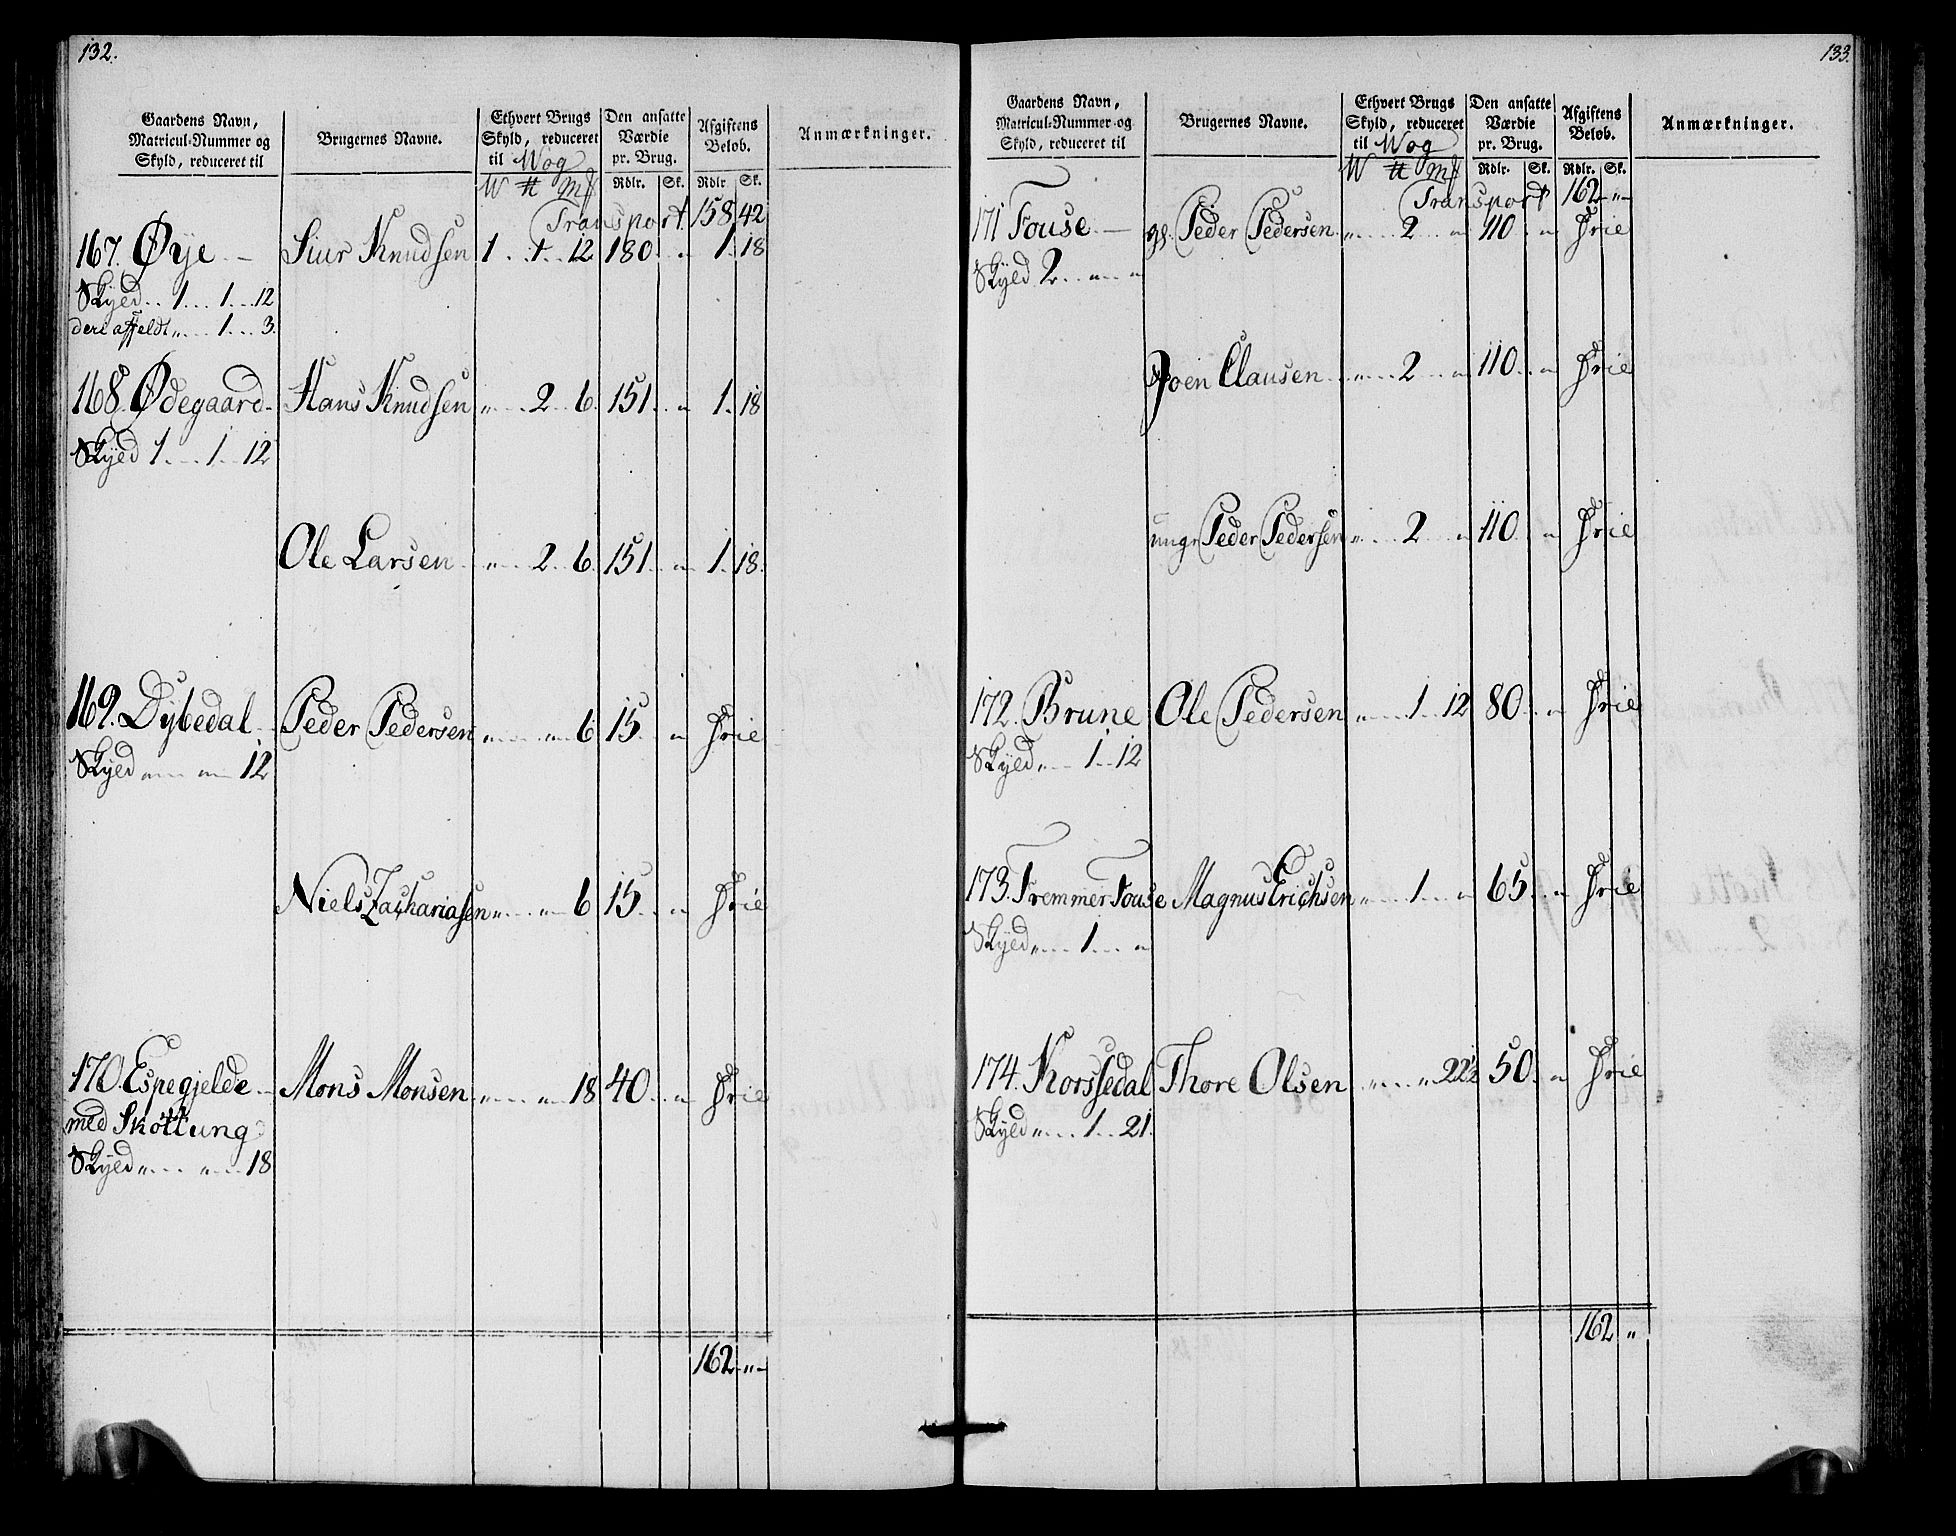 132.
Gaardens Navn, Matricul-Nummer og Skyld, reduceret til | Brugernes Navne. | Ethvert Brugs Skyld, reduceret til Wog | Den ansatte Værdie pr. Brug. | Afgiftens Beløb. | Anmærkninger.
W ℔ mf | Rdlr. Sk. | Rdlr Sk.
Transport 158 42
167. Øye Siur Knudsen 1 1 12 180 „ 1 18
Skyld 1 1 12
„ 1 3
168. Ødegaard Hans Knudsen „ 2 6 151 „ 1 18
Skyld 1 1 12
Ole Larsen „ 2 6 151 „ 1 18
169. Dybedal Peder Pedersen „ „ 6 15 „ Frie
Skyld „ „ 12
Niels Zachariasen „ „ 6 15 „ Frie
170. Espegjelde Mons Monsen „ „ 18 40 „ Frie
med Skottung
Skyld „ „ 18
162 „
133.
Gaardens Navn, Matricul-Nummer og Skyld, reduceret til | Brugernes Navne. | Ethvert Brugs Skyld, reduceret til Wog | Den ansatte Værdie pr. Brug. | Afgiftens Beløb. | Anmærkninger.
W ℔ mf | Rdlr. Sk. | Rdlr. Sk.
Transport 162 „
171 Touse gl. Peder Pedersen „ 2 „ 110 „ Frie
Skyld 2 „ „
Joen Clausen „ 2 „ 110 „ Frie
unge Peder Pedersen „ 2 „ 110 „ Frie
172. Brune Ole Pedersen „ 1 12 80 „ Frie
Skyld „ 1 12
173. Fremmer Touse Magnus Erichsen „ 1 „ 65 „ Frie
Skyld „ 1 „
174. Korssedal Thore Olsen „ „ 22½ 50 „ Frie
Skyld „ 1 21
162 „